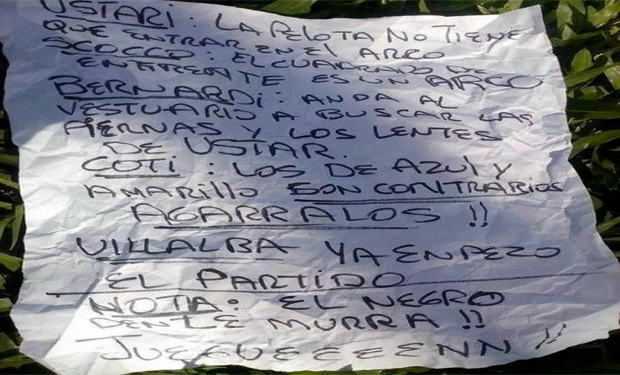 USTARI: LA PELOTA NO TIENE
QUE ENTRAR EN EL ARCO
SCOCCO: EL CUADRADO DE
ENFRENTE ES UN ARCO
BERNARDI: ANDA AL
VESTUARIO A BUSCAR LAS
PIERNAS Y LOS LENTES
DE USTAR.
COTI: LOS DE AZUL Y
AMARILLO SON CONTRARIOS
AGARRALOS !!
VILLALBA YA ENPEZO
EL PARTIDO
NOTA: EL NEGRO
DENLE MURRA !!
JUEGUEEEENN !!